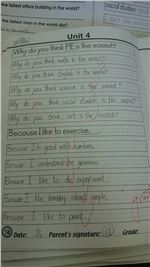 the tallest office building in the world?
the tallest man in the world die?
social studies
Unit 4
Why do you think PE is the easiest?
Why do you think math is the easiest?
Why do you think English is the easiest?
Why do you think science is the easiest?
Why do you think social studies is the easiest?
Why do you think art is the easiest?
Because I like to exercise.
Because I'm good with numbers.
Because I understand the grammar.
Because I like to do experiment.
Because I like learning about people.
Because I like to paint.
14 Date: Parent's signature: Grade: